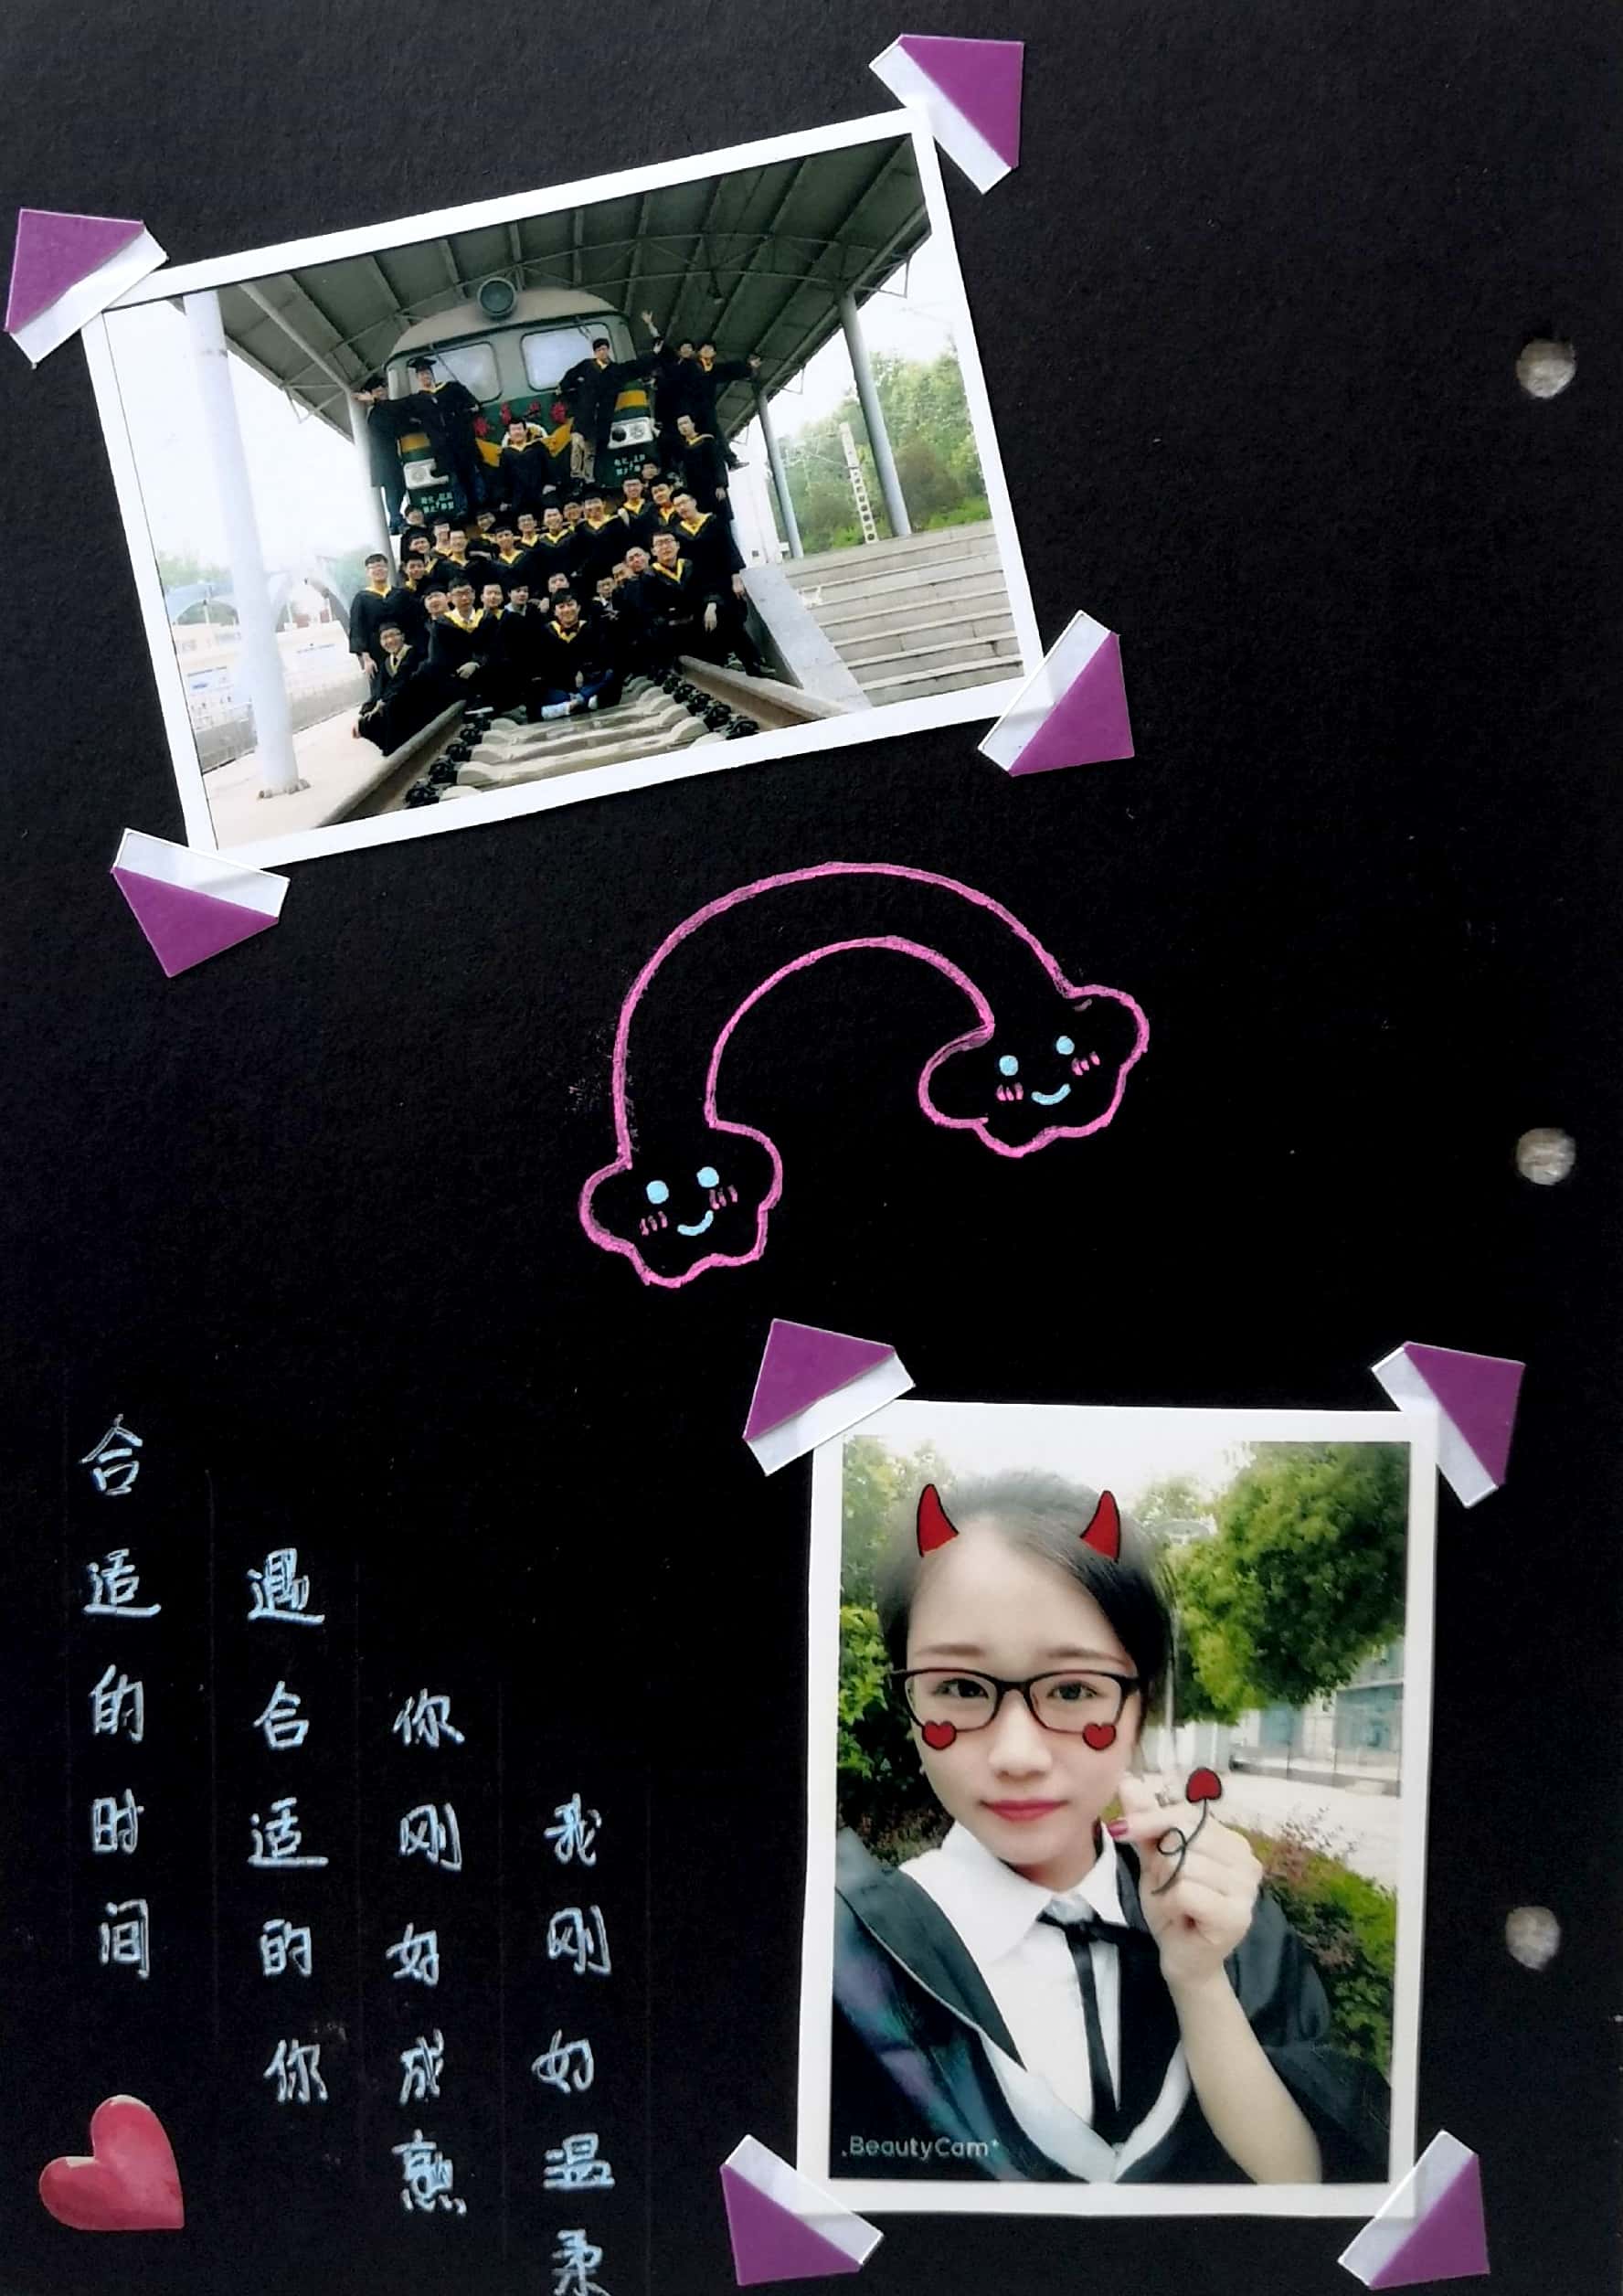 合适的时间
遇合适的你
你刚好成熟
我刚好温柔
BeautyCam